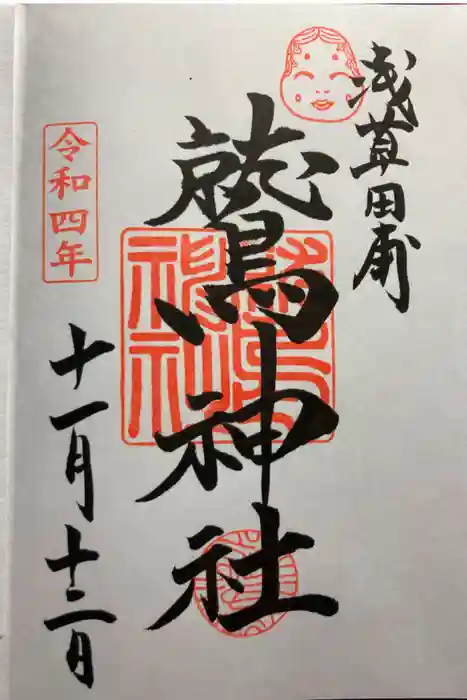 浅草田甫
鷲神社
令和四年
十一月十二日